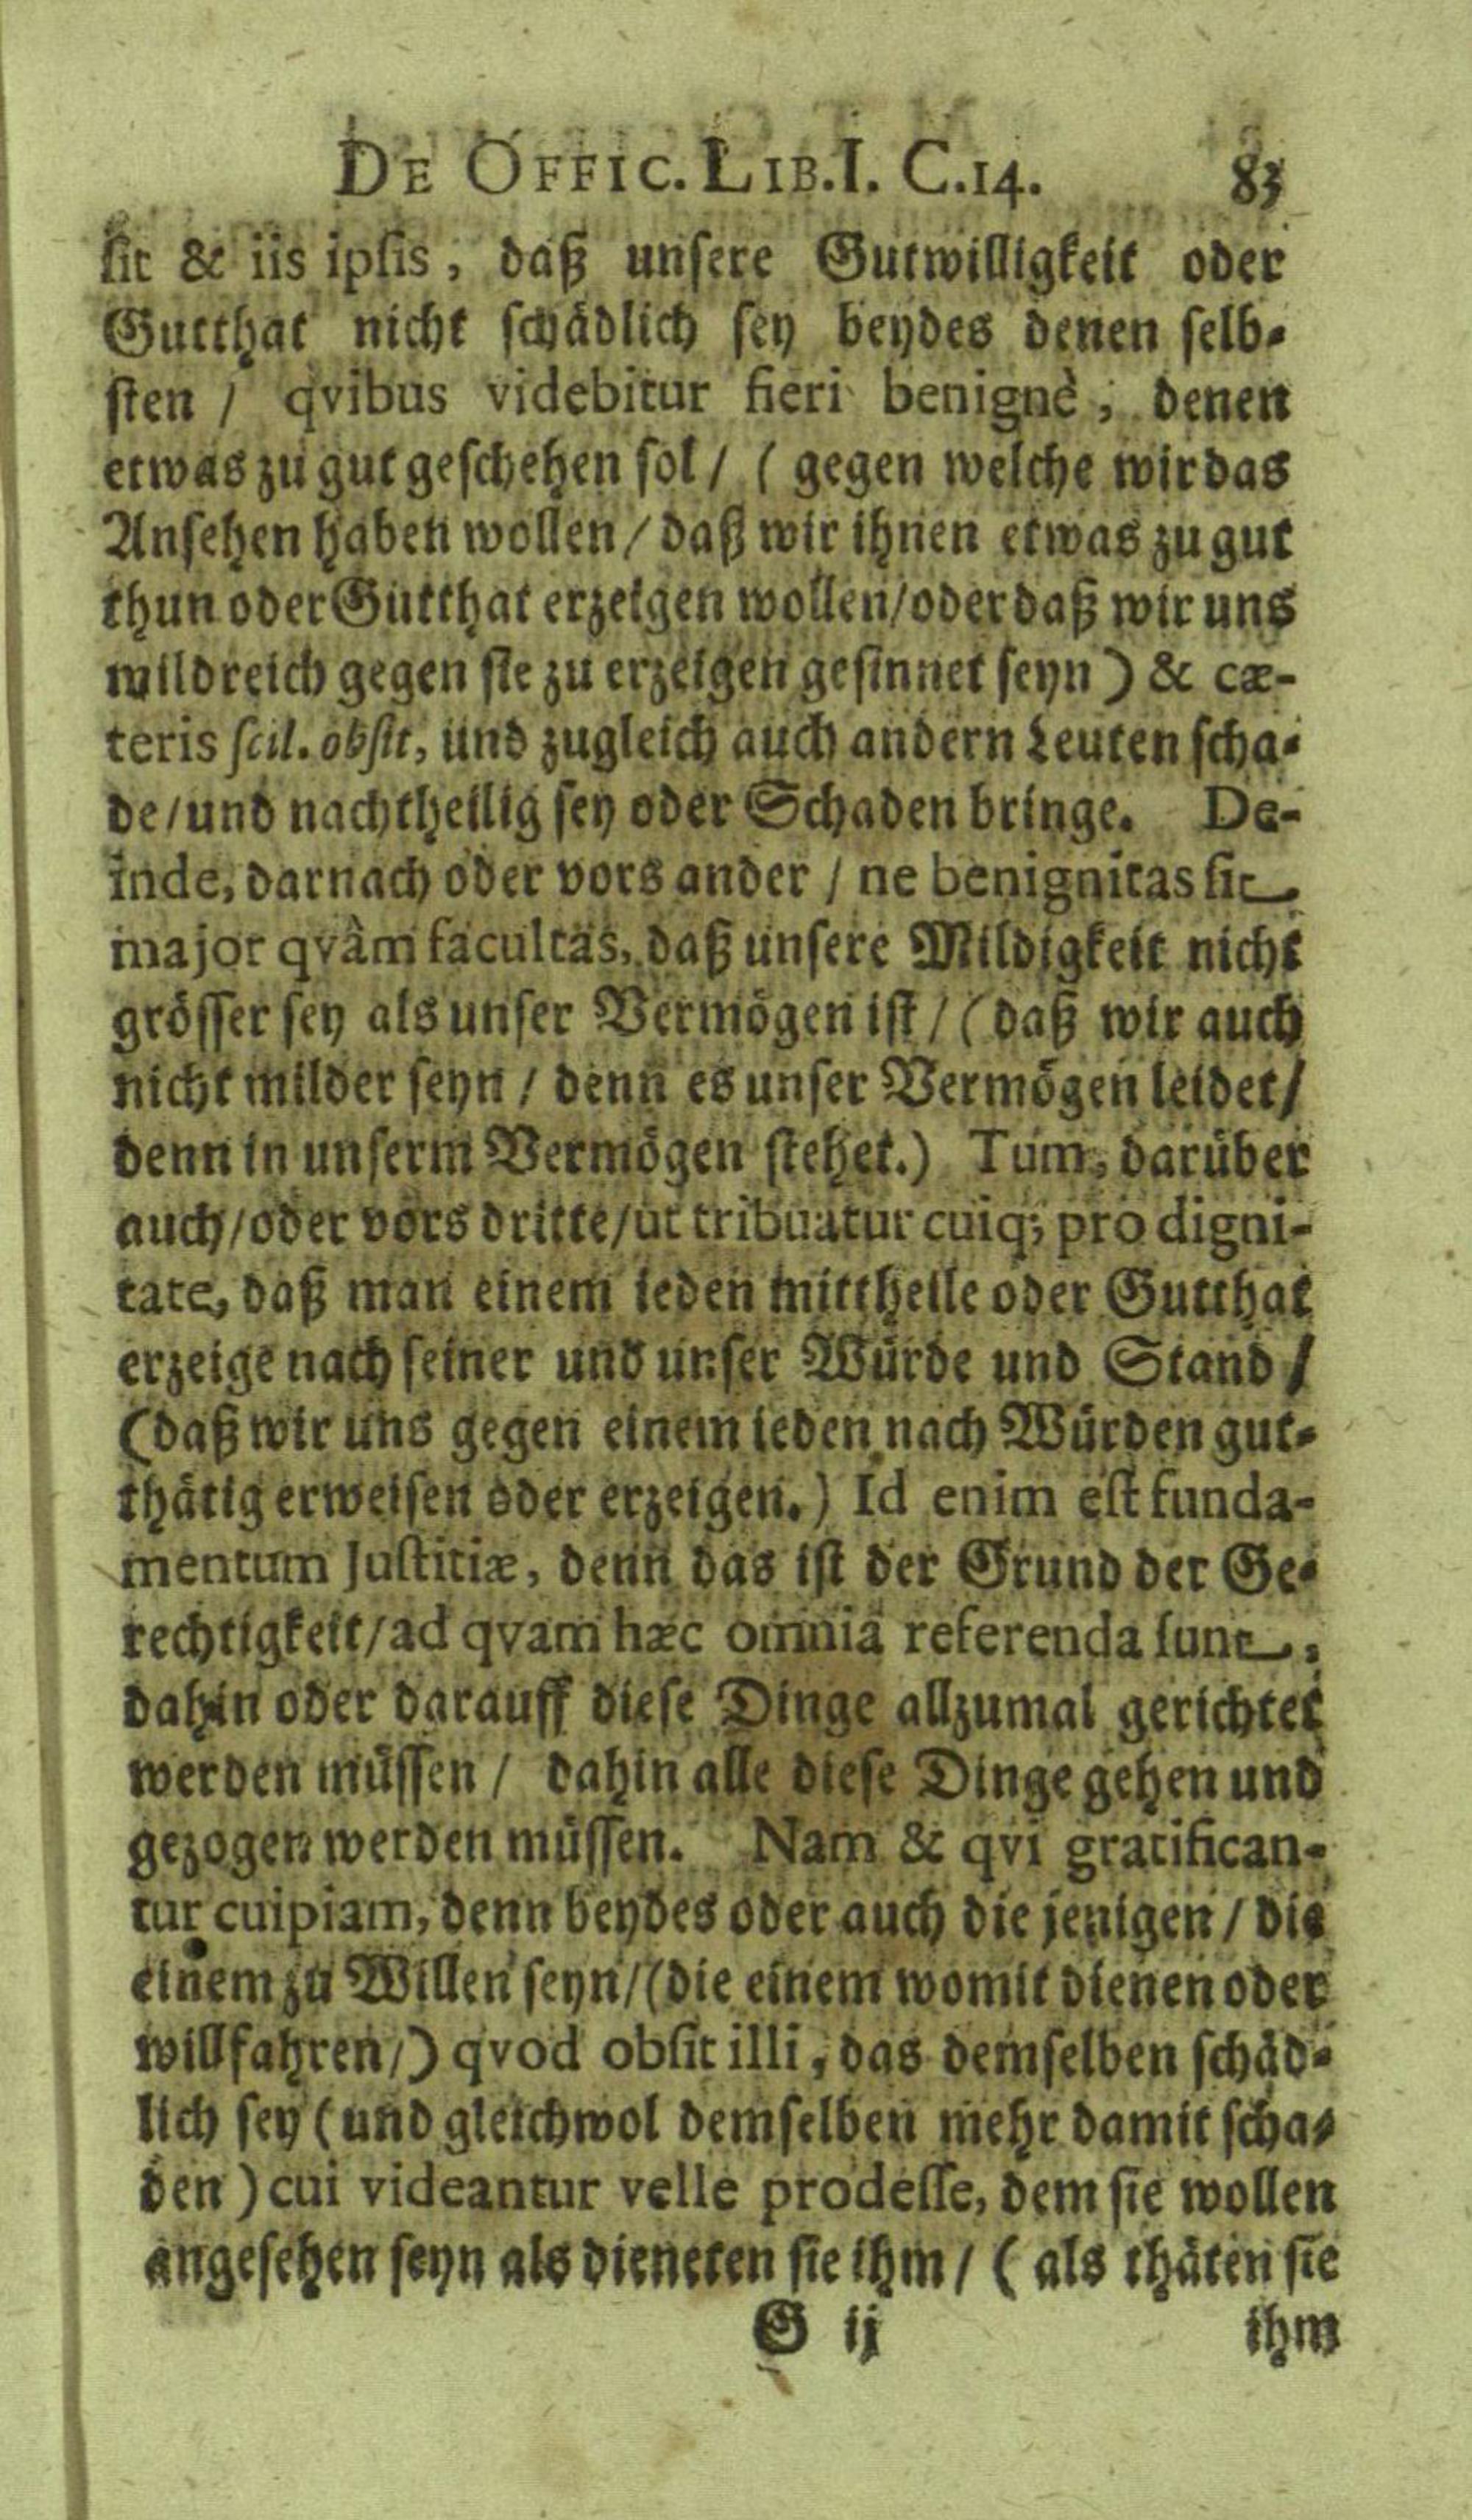 DE OFFIC. LIB. I. C. 14. 83
sit & iis ipsis, daß unsere Gutwilligkeit oder
Gutthat nicht schädlich sey beydes denen selb-
sten / qvibus videbitur fieri benignè, denen
etwas zu gut geschehen sol / ( gegen welche wir das
Ansehen haben wollen / daß wir ihnen etwas zu gut
thun oder Gutthat erzeigen wollen / oder daß wir uns
mildreich gegen sie zu erzeigen gesinnet seyn ) & cæ-
teris scil. obsit, und zugleich auch andern Leuten scha-
de / und nachtheilig sey oder Schaden bringe. De-
inde, darnach oder vors ander / ne benignitas sit
major qvàm facultas, daß unsere Mildigkeit nicht
grösser sey als unser Vermögen ist / ( daß wir auch
nicht milder seyn / denn es unser Vermögen leidet /
denn in unserm Vermögen stehet.) Tum, darüber
auch / oder vors dritte / ut tribuatur cuiq; pro digni-
tate, daß man einem ieden mittheile oder Gutthat
erzeige nach seiner und unser Würde und Stand /
( daß wir uns gegen einem ieden nach Würden gut-
thätig erweisen oder erzeigen.) Id enim est funda-
mentum Justitiæ, denn das ist der Grund der Ge-
rechtigkeit / ad qvam hæc omnia referenda sunt,
dahin oder darauff diese Dinge allzumal gerichtet
werden müssen / dahin alle diese Dinge gehen und
gezogen werden müssen. Nam & qvi gratifican-
tur cuipiam, denn beydes oder auch die jenigen / die
einem zu Willen seyn / ( die einem womit dienen oder
willfahren / ) qvod obsit illi, das demselben schäd-
lich sey ( und gleichwol demselben mehr damit scha-
den ) cui videantur velle prodesse, dem sie wollen
angesehen seyn als dieneten sie ihm / ( als thäten sie
G ij ihm